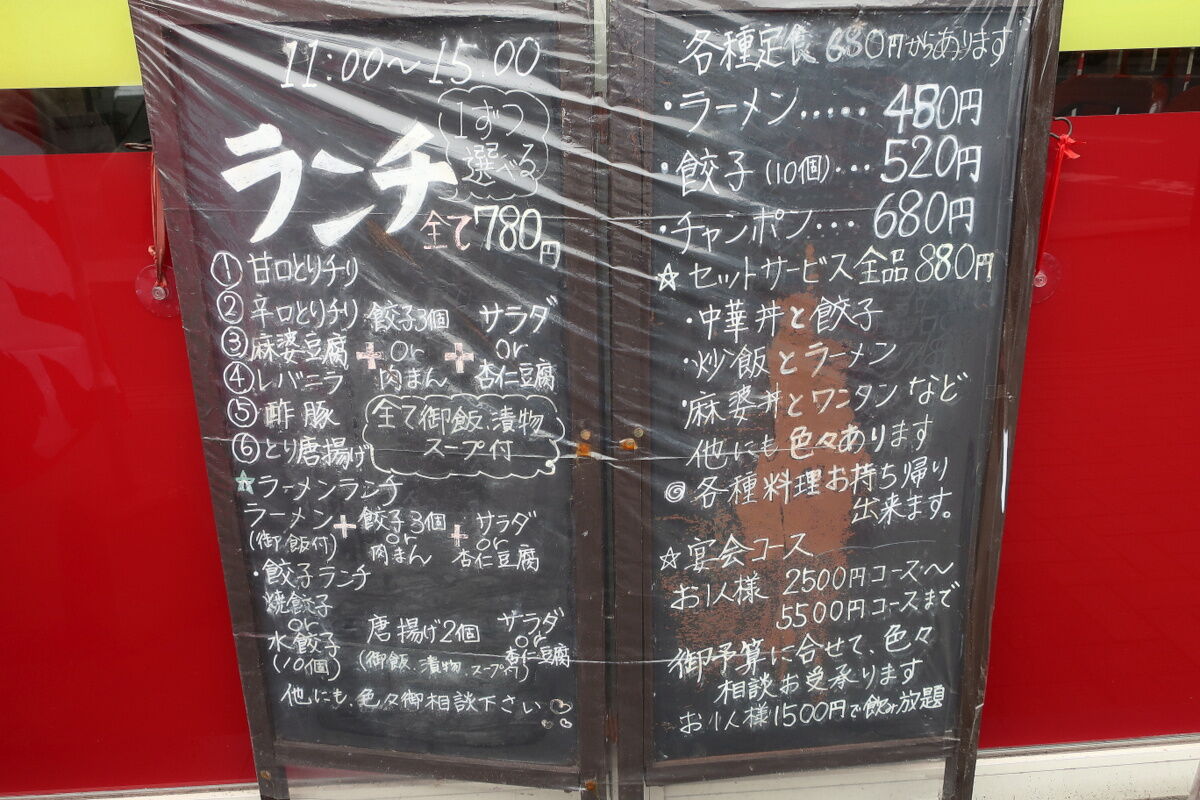 11:00〜15.00
1ずつ
選べる
ランチ
全て780円
①甘口とりチリ
②辛口とりチリ 餃子3個 サラダ
③麻婆豆腐 + or + or
④レバニラ 肉まん 杏仁豆腐
⑤酢豚 全て御飯、漬物
⑥とり唐揚げ スープ付
☆ラーメンランチ
ラーメン + 餃子3個 + サラダ
(御飯付) or or
肉まん 杏仁豆腐
・餃子ランチ
焼餃子
or
水餃子 唐揚げ2個 サラダ
(10個) (御飯、漬物、スープ付) or
杏仁豆腐
他にも、色々御相談下さい
各種定食680円からあります
・ラーメン・・・・・480円
・餃子(10個)・・・520円
・チャンポン・・・680円
☆セットサービス全品880円
・中華丼と餃子
・炒飯とラーメン
・麻婆丼とワンタンなど
他にも色々あります
◎各種料理お持ち帰り
出来ます。
☆宴会コース
お1人様 2500円コース〜
5500円コースまで
御予算に合せて、色々
相談お受承ります
お1人様1500円で飲み放題